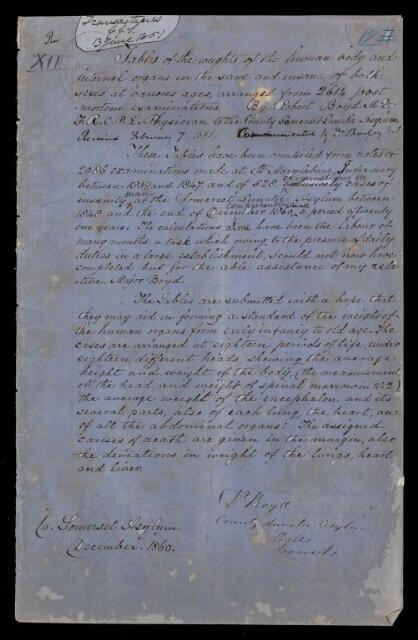 Transactions
13 June 1861
12
XII
Tables of the weights of the human body and
internal organs in the sane and insane of both
sexes at various ages, arranged from 2614 post
mortem examinations. By Robert Boyd M.D.
F.R.C.P.L. Physician to the County Somerset Lunatic Asylum.
Received February 7, 1861. Communicated by Dr Sharpey
These Tables have been compiled from notes of
2086 examinations made at St. Marylebone Infirmary
between and 1847 and of 528 cases of
insanity, at the Somerset Lunatic Asylum between
1848 and the end of December 1860, a period of twenty
one years. The calculations alone have been the labour of
many months a task which owing to the pressure of daily
duties in a large establishment, I could not now have
completed but for the able assistance of my rela
tive, Major Boyd.
The Tables are submitted with a hope that
they may aid in forming a standard of the weight of
the human organs from early infancy to old age. The
cases are arranged at eighteen periods of life, under
eighteen different heads, shewing the average
height and weight of the body, (the measurement
of the head and weight of spinal marrow in 222)
the average weight of the encephalon and its
several parts, also of each lung, the heart, and
of all the abdominal organs: The assigned
causes of death are given in the margin, also
the deviations in weight of the lungs, heart
and liver.
Dr Boyd
County Lunatic Asylum
Wells
Somerset
Co. Somerset Asylum.
December. 1860.